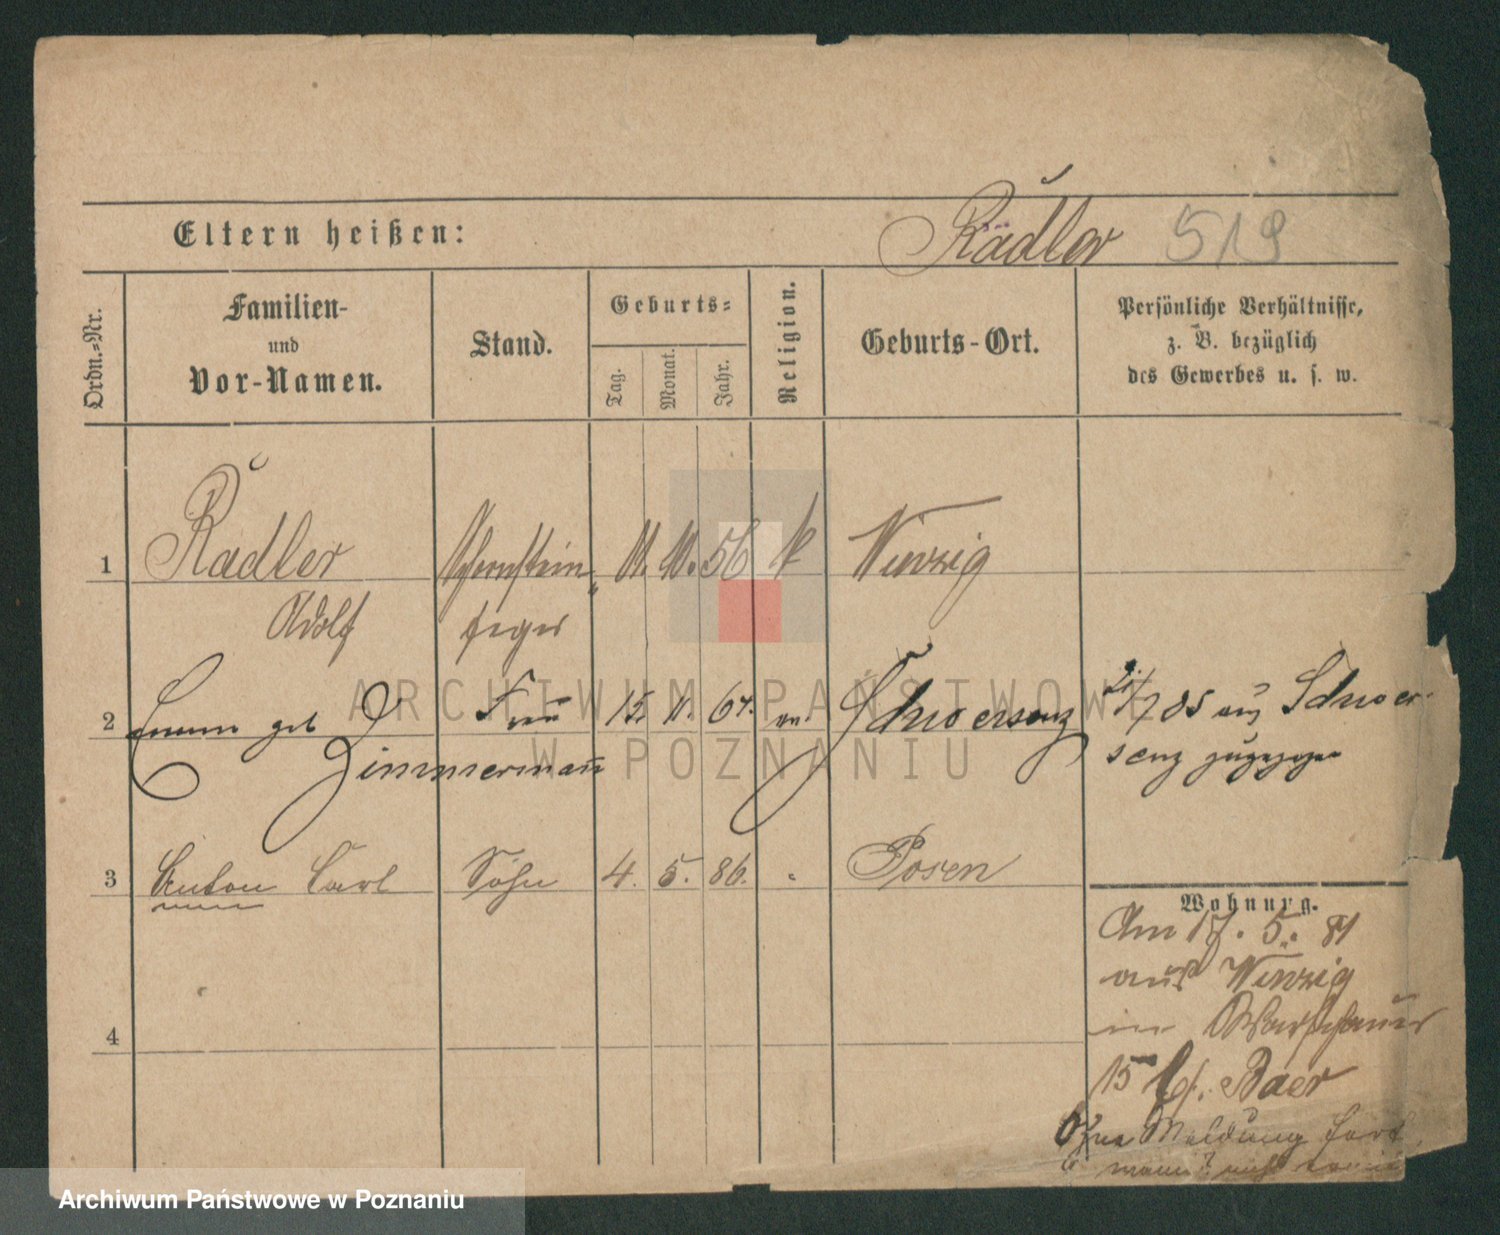 Eltern heißen: Rädler 519
Ordn.=Nr.
Familien-
und
Vor-Namen.
Stand.
Geburts=
Tag.
Monat.
Jahr.
Religion.
Geburts-Ort.
Persönliche Verhältnisse,
z. B. bezüglich
des Gewerbes u. s. w.
1 Rädler Schornstein 11. 10. 56 k Winzig
Adolf feger
2 Emma geb Frau 15. 11. 64. ev. Schwersenz 85 aus Schwer-
Zimmermann senz zugezogen
3 Anton Carl Sohn 4. 5. 86. Posen
Wohnung.
Am 17. 5. 81
aus Winzig
in
4
15 bei Baer
Ohne Meldung fort
ARCHIWUM PAŃSTWOWE
W POZNANIU
Archiwum Państwowe w Poznaniu